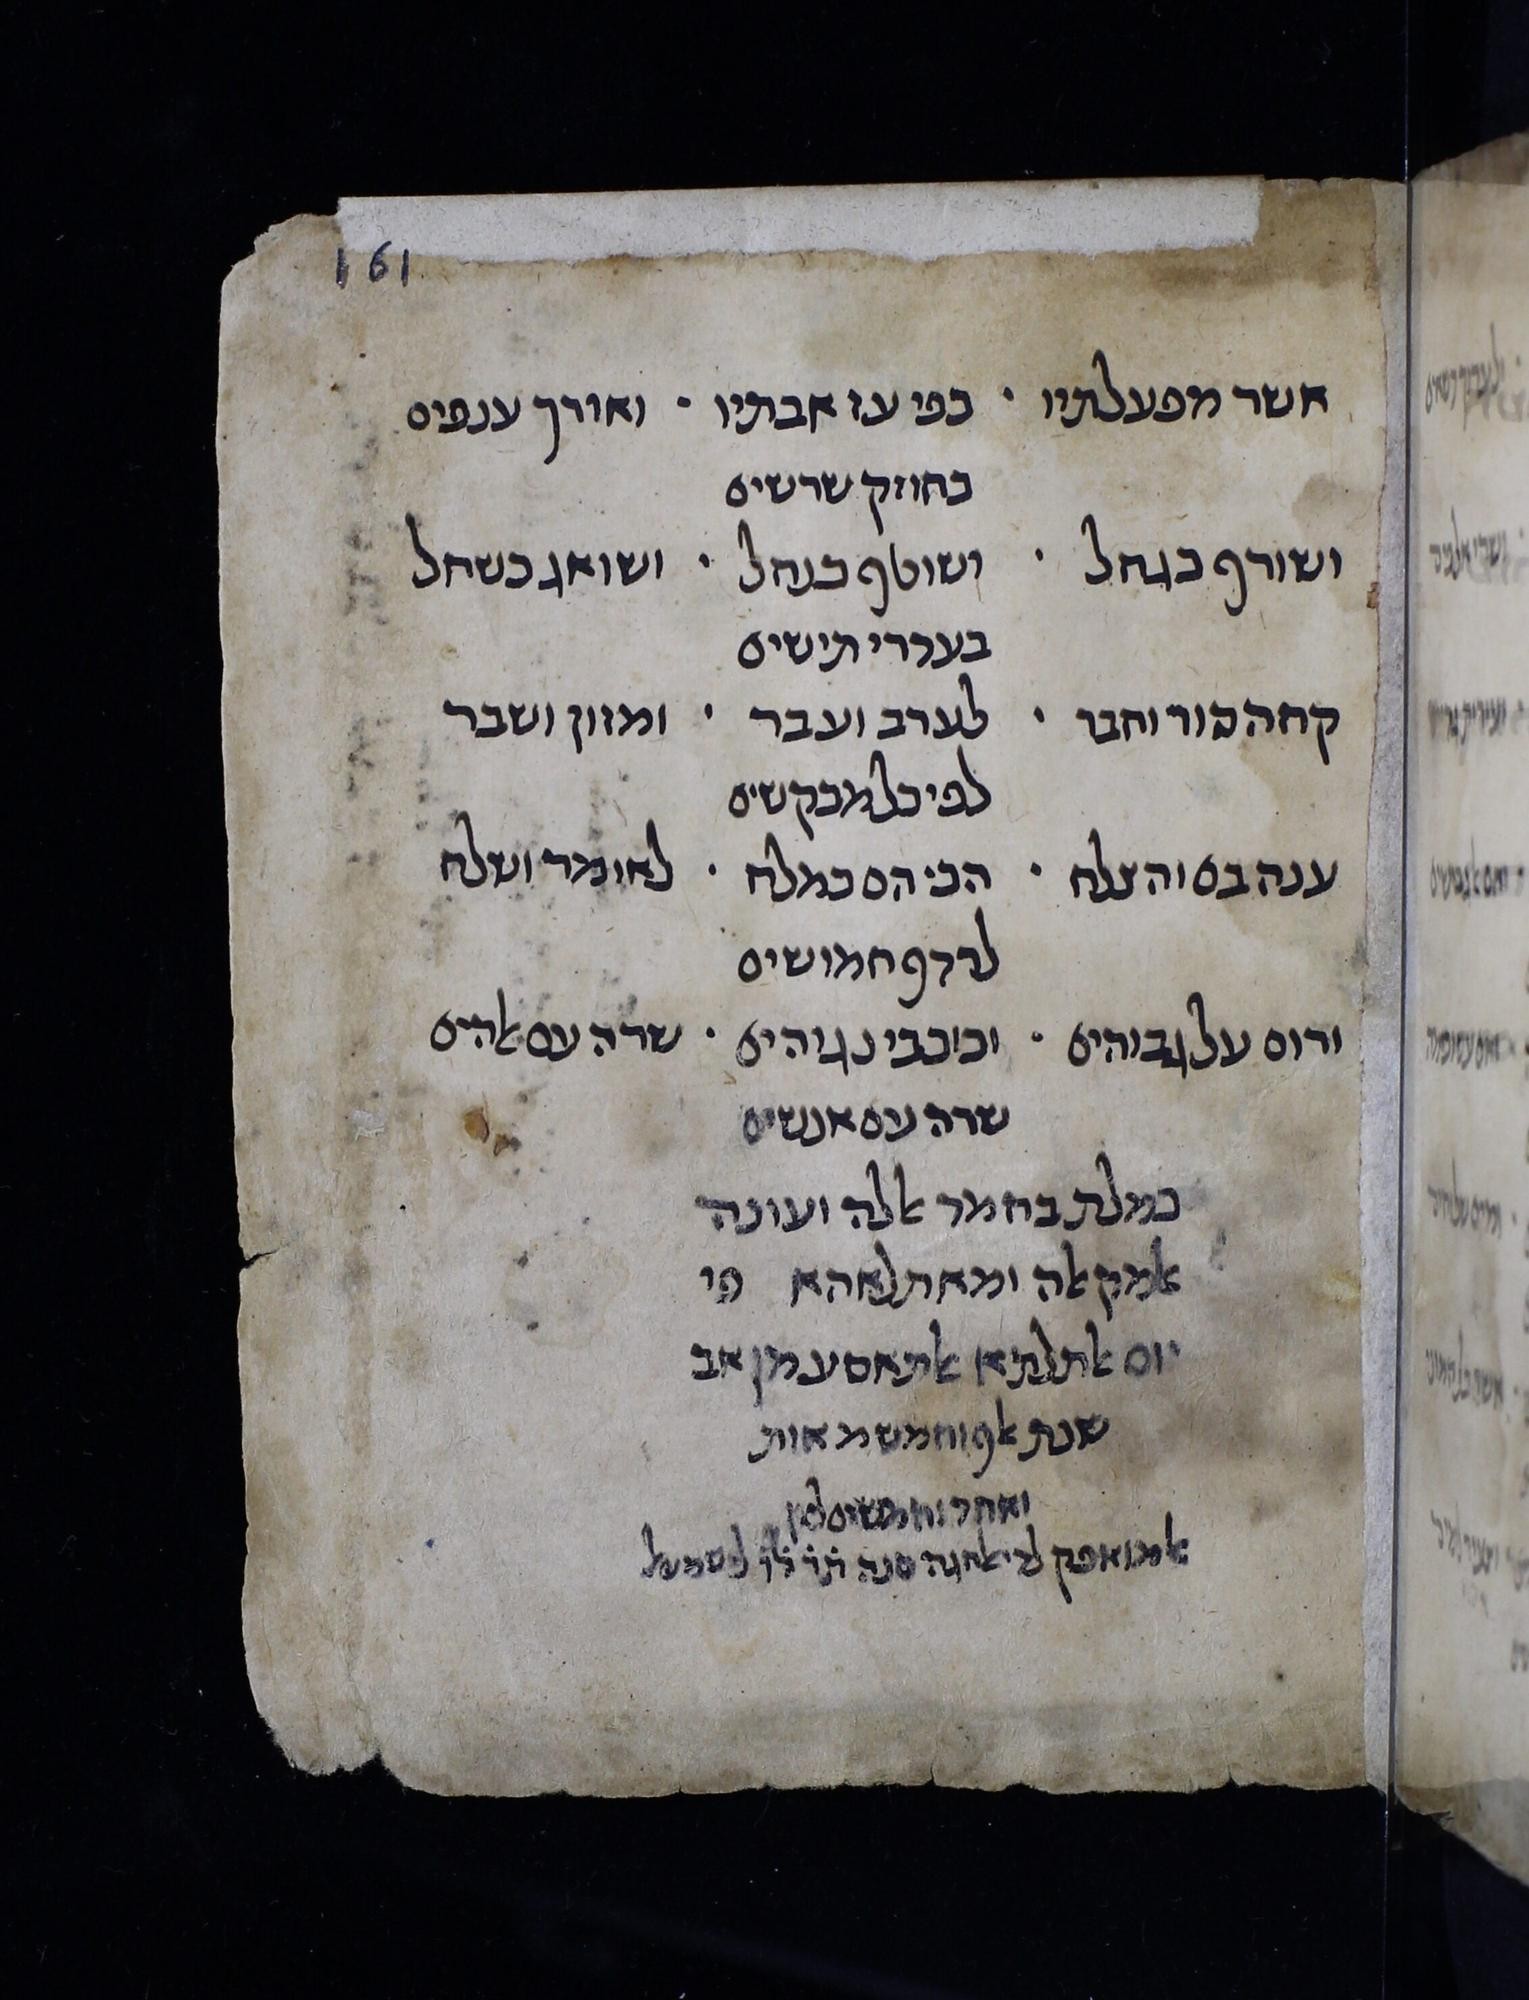 161
אשר מפעלתיו · כפי עז אבתיו · ואורך ענפים
כחוזק שרשים
ושורף כגחל · ושוטף כנחל · ושואג כשחל
בעדרי תישים
קחה פור וחבר · לערב ועבר · ומזון ושבר
לפי כל מבקשים
ענה בם והצלח · הכי הם כמלח · לחומר ושלח
לרדף חמושים
ורום על גבוהים · וכוכבי נגיהים · שרה עם אלהים
שרה עם אנשים
כמלת בחמד אללה ועונה
אלמקאלה ומא תלאהא פי
יום אלתלתא אלתאסע מן אב
שנת אלף וחמש מאות
ואחד וחמשים
אלמואפק סנה